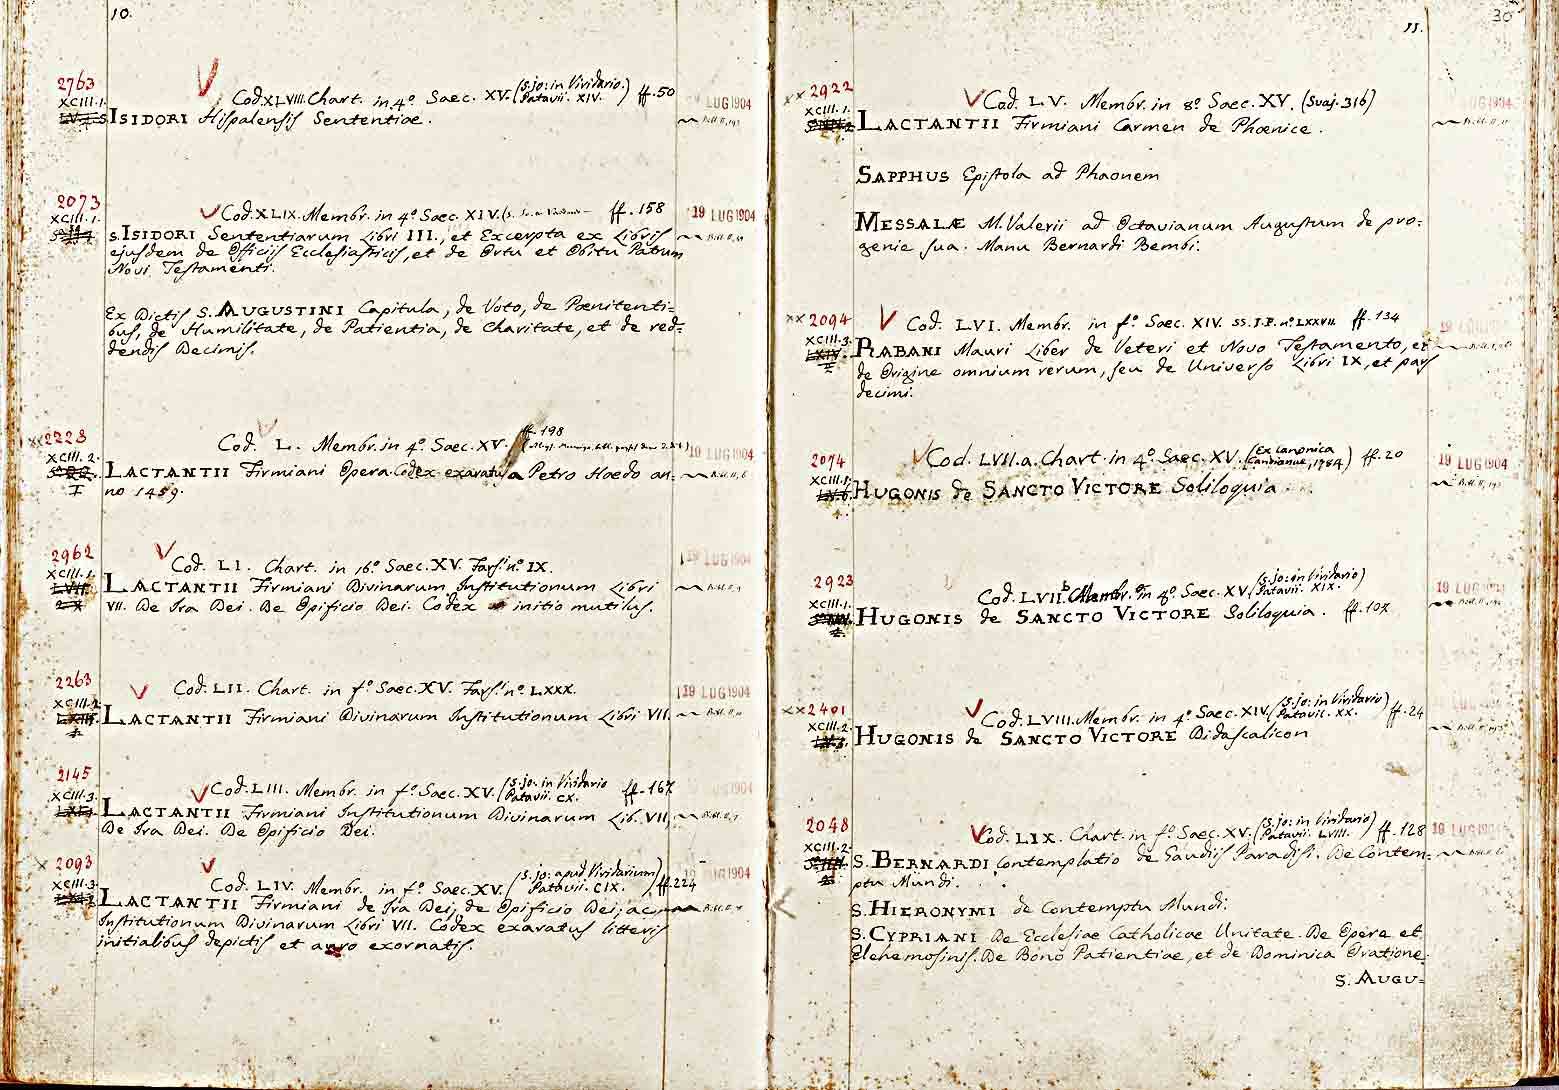 10.
2763
XCIII.1.
Cod. XLVIII. Chart. in 4º Saec. XV. (S. Jo: in Viridario. Patavii. XIV.) ff. 50
LUG 1904
S ISIDORI Hispalensis Sententiae.
2073
XCIII.1.
Cod. XLIX. Membr. in 4º Saec. XIV. ff. 158
19 LUG 1904
S. ISIDORI Sententiarum Libri III., et Excerpta ex Libris
ejusdem de Officiis Ecclesiasticis, et de Ortu et Obitu Patrum
Novi Testamenti.
Ex Dictis S. AUGUSTINI Capitula, de Voto, de Pœnitenti=
bus, de Humilitate, de Patientia, de Charitate, et de red=
dendis Decimis.
xx 2228
XCIII.2.
Cod. L. Membr. in 4º Saec. XV. ff. 198
19 LUG 1904
LACTANTII Firmiani Opera. Codex exaratus a Petro Hoedo an=
no 1459.
2962
XCIII.1.
Cod. LI. Chart. in 16º Saec. XV. Fars. nº IX.
19 LUG 1904
LACTANTII Firmiani Divinarum Institutionum Libri
VII. De Ira Dei. De Opificio Dei. Codex initio mutilus.
2263
XCIII.2.
Cod. LII. Chart. in fº Saec. XV. Fars. nº LXXX.
19 LUG 1904
LACTANTII Firmiani Divinarum Institutionum Libri VII.
2145
XCIII.3.
Cod. LIII. Membr. in fº Saec. XV. (S. Jo: in Viridario Patavii. CX.) ff. 167
LACTANTII Firmiani Institutionum Divinarum Lib. VII,
De Ira Dei. De Opificio Dei.
x 2093
XCIII.3.
Cod. LIV. Membr. in fº Saec. XV. (S. Jo: apud Viridarium Patavii. CIX.) ff. 224
LUG 1904
LACTANTII Firmiani de Ira Dei, de Opificio Dei, ac
Institutionum Divinarum Libri VII. Codex exaratus litteris
initialibus depictis et auro exornatis.
30
11.
xx 2922
XCIII.1.
Cod. LV. Membr. in 8º Saec. XV. (Suaj. 316)
LACTANTII Firmiani Carmen de Phœnice.
SAPPHUS Epistola ad Phaonem
MESSALÆ M. Valerii ad Octavianum Augustum de pro=
genie sua. Manu Bernardi Bembi.
xx 2094
XCIII.3.
LXIV.
Cod. LVI. Membr. in fº Saec. XIV. SS. J. P. nº LXXVII. ff. 134
RABANI Mauri Liber de Veteri et Novo Testamento, et
de Origine omnium rerum, seu de Universo Libri IX, et pars
decimi.
2074
XCIII.1.
Cod. LVII.a. Chart. in 4º Saec. XV. (Ex Canonica 1784) ff. 20
19 LUG 1904
HUGONIS de SANCTO VICTORE Soliloquia
2923
XCIII.1.
Cod. LVII.b Membr. in 8º Saec. XV (S. Jo: in Viridario Patavii. XIX.)
19 LUG 1904
HUGONIS de SANCTO VICTORE Soliloquia. ff. 107
xx 2401
XCIII.2.
Cod. LVIII. Membr. in 4º Saec. XIV. (S. Jo: in Viridario Patavii. XX.) ff. 24
HUGONIS de SANCTO VICTORE Didascalicon
2048
XCIII.2.
Cod. LIX. Chart. in fº Saec. XV. (S. Jo: in Viridario Patavii. LVIII.) ff. 128
19 LUG
S. BERNARDI Contemplatio de Gaudiis Paradisi. De Contem=
ptu Mundi.
S. HIERONYMI de Contemptu Mundi.
S. CYPRIANI De Ecclesiae Catholicae Unitate. De Opere et
Elehemosinis. De Bono Patientiae, et de Dominica Oratione.
S. AUGU=